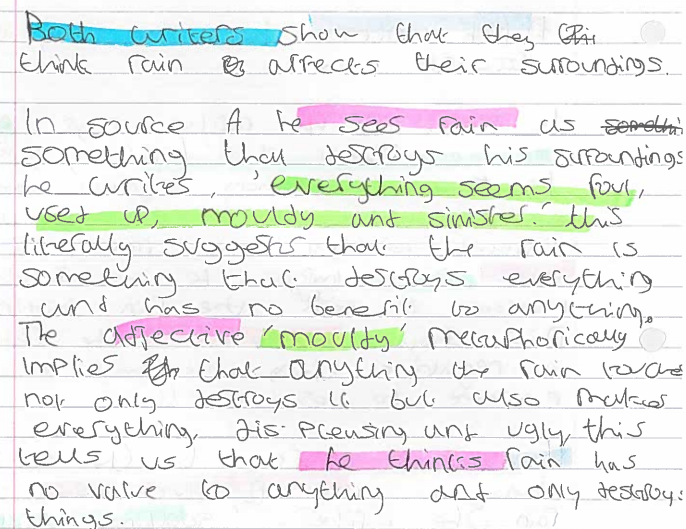 Both writers show that they
think rain affects their surroundings.
In source A he sees rain as
something that destroys his surroundings
he writes, 'everything seems foul,
used up, mouldy and sinister.' this
literally suggests that the rain is
something that destroys everything
and has no benefit to anything.
The adjective 'mouldy' metaphorically
implies that anything the rain touches
not only destroys it but also makes
everything, dis-pleasing and ugly, this
tells us that he thinks rain has
no value to anything and only destroys
things.